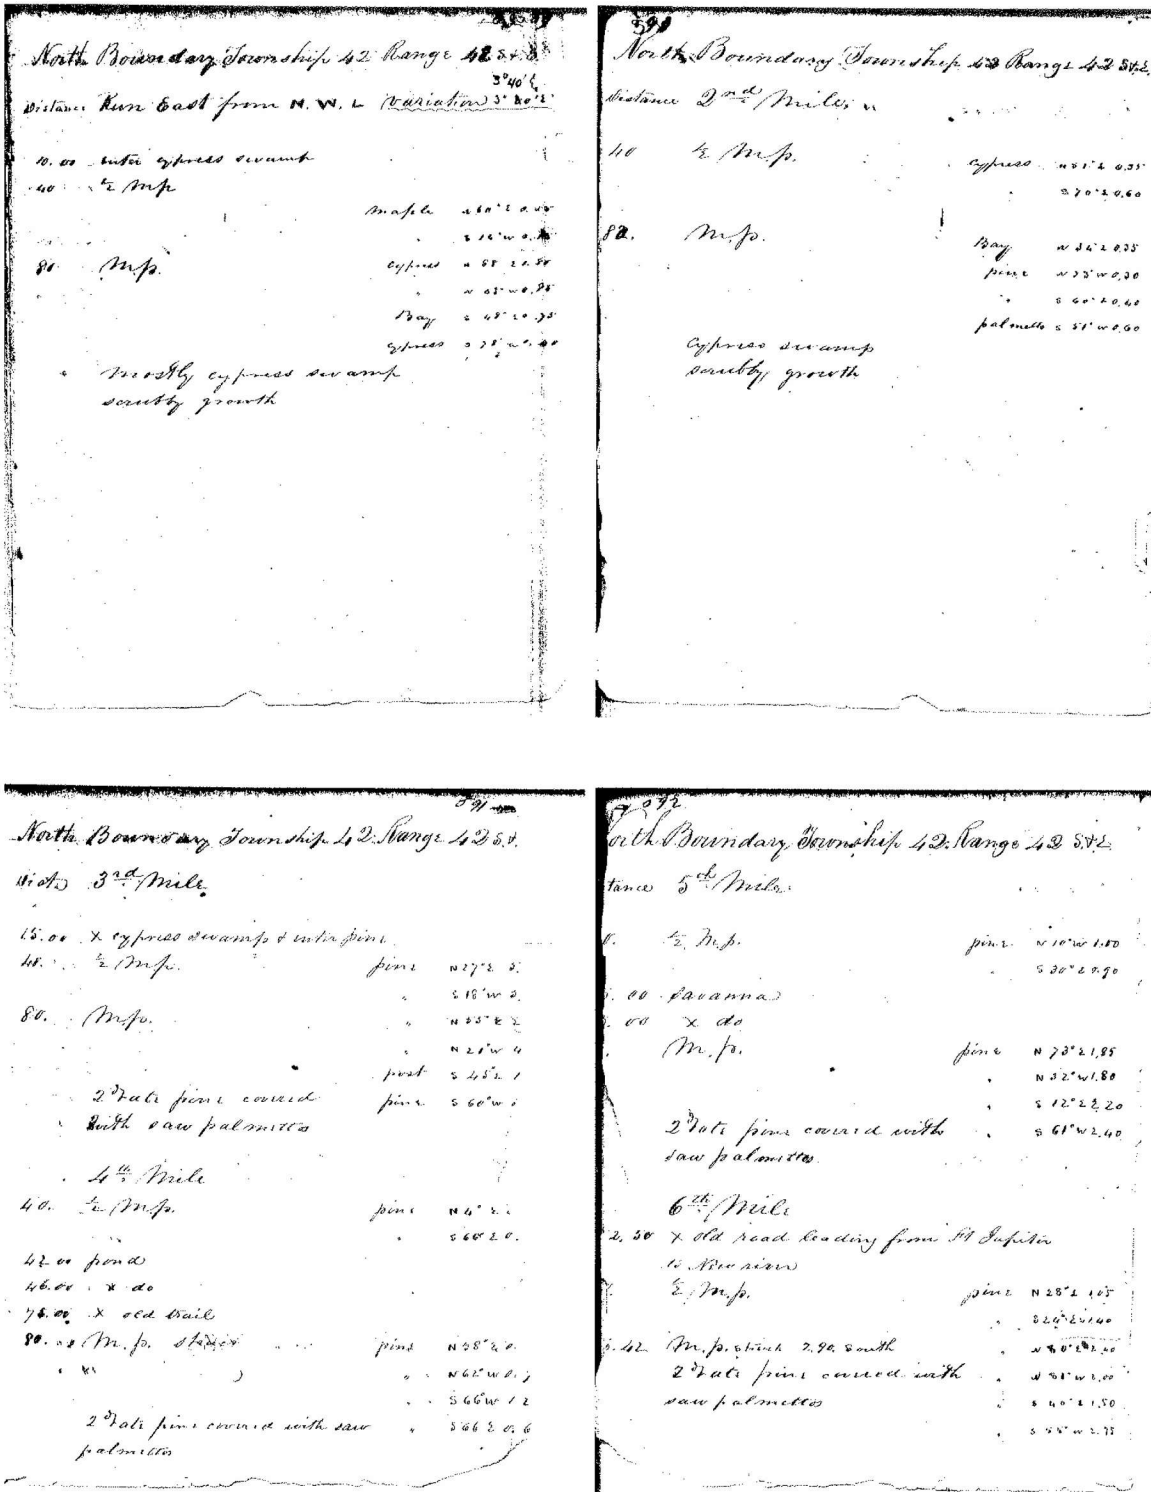 North Boundary Township 42 Range 42 S & E
3° 40' E
Distance Run East from N. W. L variation
10.00 enter cypress swamp
40 ½ M.p
Maple
80. M.p. cypress
Bay
cypress
Mostly cypress swamp
scrubby growth
590
North Boundary Township 42 Range 42 S & E.
Distance 2nd Mile
40 ½ M.p. cypress N 51° E 0.35
S 70° E 0.60
82. M.p. Bay N 34° E 0.35
pine N 35° W 0.30
" S 60° E 0.40
palmetto S 51° W 0.60
Cypress swamp
scrubby growth
591
North Boundary Township 42. Range 42 S &
Dist. 3rd Mile
15.00 X cypress swamp & enter pine
40. ½ M.p. pine N 27° E
" S 18° W
80. M.p. "
" N 21° W
post S 45° E
2d rate pine covered pine S 60° W
with saw palmettos
4th Mile
40. ½ M.p. pine N 4° E
"
42.00 pond
46.00 X do
75.00 X old trail
80. M.p. pine
" N 62° W
" S 66° W
2d rate pine covered with saw " S 66 E 0.6
palmettos
592
orth Boundary Township 42. Range 42 S & E
tance 5th Mile.
0. ½ M.p. pine N 10° W 1.00
" S 30° E 0.90
00 Savanna
00 X do
M.p. pine N 73° E 1.85
" N 32° W 1.80
" S 12° E 2.20
2d rate pine covered with " S 61° W 2.40
saw palmettos
6th Mile
2.50 X old road leading from Ft Jupiter
to New river
½ M.p. pine N 28° E 1.05
"
.42 M.p. struck 2.90 south "
2d rate pine covered with " N 51° W 2.00
saw palmettos " S 40° E 1.50
" S 55° W 2.75